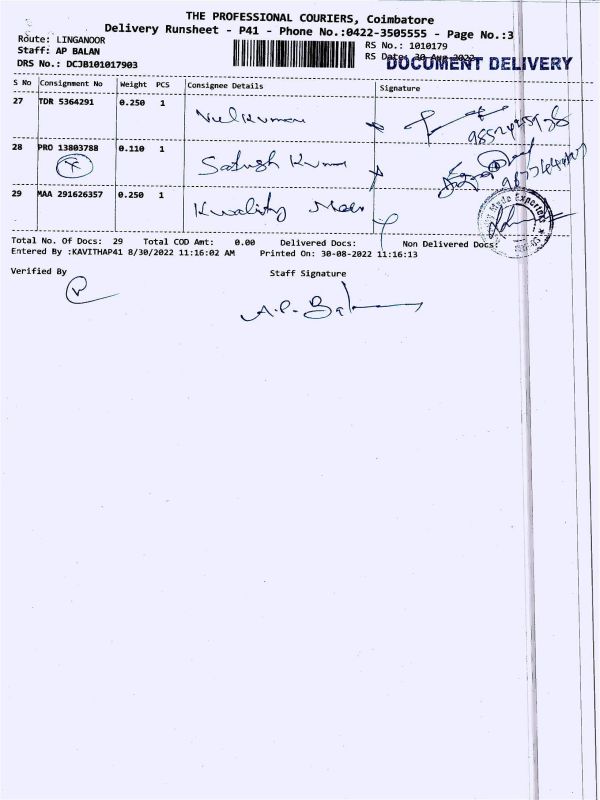 THE PROFESSIONAL COURIERS, Coimbatore
Delivery Runsheet - P41 - Phone No.:0422-3505555 - Page No.:3
Route: LINGANOOR
RS No.: 1010179
Staff: AP BALAN
RS Date: 30-Aug-2022
DOCUMENT DELIVERY
DRS No.: DCJB101017903
S No Consignment No Weight PCS Consignee Details Signature
27 TDR 5364291 0.250 1
28 PRO 13803788 0.110 1 Satush Kumar
29 MAA 291626357 0.250 1 Kwality
Total No. Of Docs: 29 Total COD Amt: 0.00 Delivered Docs: Non Delivered Docs:
Entered By :KAVITHAP41 8/30/2022 11:16:02 AM Printed On: 30-08-2022 11:16:13
Verified By Staff Signature
A.P. Balan